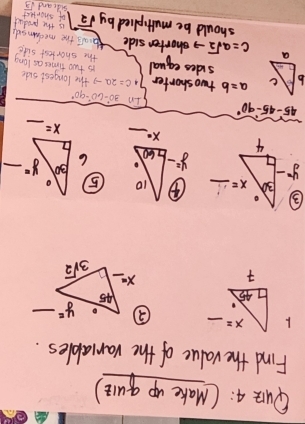 Quiz 4: (Make up quiz)
Find the value of the variables.
1
x = _
45°
7
2
y = _
45°
x = _
3√2
3
30°
y = _
x = _
4
4
60°
y = _
10
x = _
5
30°
y = _
6
x = _
45-45-90°
b
c
a
a = b → two shorter
sides equal
c = a√2 → shorter side
should be multiplied by √2
In 30°-60°-90°
• c = 2a → the longest side
is two times as long
the shortest side.
is the product
of shortest
side and √3